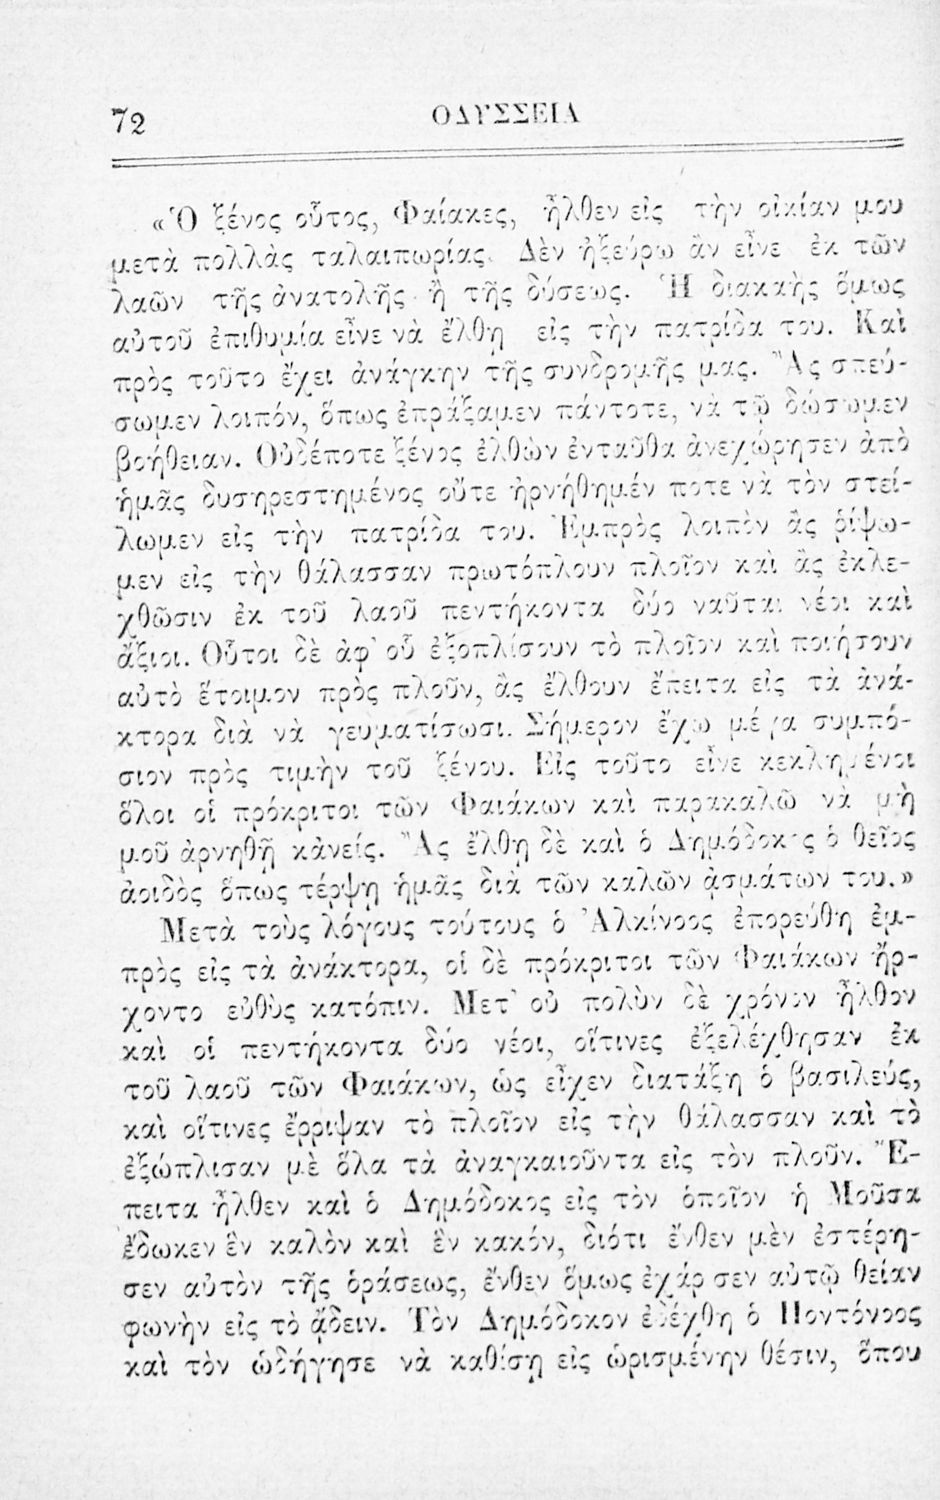 72
ΟΔΥΣΣΕΙΑ
«Ὁ ξένος οὗτος, Φαίακες, ἦλθεν εἰς τὴν οἰκίαν μου
μετὰ πολλὰς ταλαιπωρίας. Δὲν ἠξεύρω ἂν εἶνε ἐκ τῶν
λαῶν τῆς ἀνατολῆς ἢ τῆς δύσεως. Ἡ διακαὴς ὅμως
αὐτοῦ ἐπιθυμία εἶνε νὰ ἔλθῃ εἰς τὴν πατρίδα του. Καὶ
πρὸς τοῦτο ἔχει ἀνάγκην τῆς συνδρομῆς μας. Ἂς σπεύ-
σωμεν λοιπόν, ὅπως ἐπράξαμεν πάντοτε, νὰ τῷ δώσωμεν
βοήθειαν. Οὐδέποτε ξένος ἐλθὼν ἐνταῦθα ἀνεχώρησεν ἀπὸ
ἡμᾶς δυσηρεστημένος οὔτε ἠρνήθημέν ποτε νὰ τὸν στεί-
λωμεν εἰς τὴν πατρίδα του. Ἐμπρὸς λοιπὸν ἂς ῥίψω-
μεν εἰς τὴν θάλασσαν πρωτόπλουν πλοῖον καὶ ἂς ἐκλε-
χθῶσιν ἐκ τοῦ λαοῦ πεντήκοντα δύο ναῦται νέοι καὶ
ἄξιοι. Οὗτοι δὲ ἀφ' οὗ ἐξοπλίσουν τὸ πλοῖον καὶ ποιήσουν
αὐτὸ ἕτοιμον πρὸς πλοῦν, ἂς ἔλθουν ἔπειτα εἰς τὰ ἀνά-
κτορα διὰ νὰ γευματίσωσι. Σήμερον ἔχω μέγα συμπό-
σιον πρὸς τιμὴν τοῦ ξένου. Εἰς τοῦτο εἶνε κεκλημένοι
ὅλοι οἱ πρόκριτοι τῶν Φαιάκων καὶ παρακαλῶ νὰ μὴ
μοῦ ἀρνηθῇ κἀνείς. Ἂς ἔλθῃ δὲ καὶ ὁ Δημόδοκος ὁ θεῖος
ἀοιδὸς ὅπως τέρψῃ ἡμᾶς διὰ τῶν καλῶν ᾀσμάτων του.»
Μετὰ τοὺς λόγους τούτους ὁ Ἀλκίνοος ἐπορεύθη ἐμ-
πρὸς εἰς τὰ ἀνάκτορα, οἱ δὲ πρόκριτοι τῶν Φαιάκων ἤρ-
χοντο εὐθὺς κατόπιν. Μετ' οὐ πολὺν δὲ χρόνον ἦλθον
καὶ οἱ πεντήκοντα δύο νέοι, οἵτινες ἐξελέχθησαν ἐκ
τοῦ λαοῦ τῶν Φαιάκων, ὡς εἶχεν διατάξῃ ὁ βασιλεύς,
καὶ οἵτινες ἔρριψαν τὸ πλοῖον εἰς τὴν θάλασσαν καὶ τὸ
ἐξώπλισαν μὲ ὅλα τὰ ἀναγκαιοῦντα εἰς τὸν πλοῦν. Ἔ-
πειτα ἦλθεν καὶ ὁ Δημόδοκος εἰς τὸν ὁποῖον ἡ Μοῦσα
ἔδωκεν ἓν καλὸν καὶ ἓν κακόν, διότι ἔνθεν μὲν ἐστέρη-
σεν αὐτὸν τῆς ὁράσεως, ἔνθεν ὅμως ἐχάρισεν αὐτῷ θείαν
φωνὴν εἰς τὸ ᾄδειν. Τὸν Δημόδοκον ἐδέχθη ὁ Ποντόνοος
καὶ τὸν ὡδήγησε νὰ καθίσῃ εἰς ὡρισμένην θέσιν, ὅπου